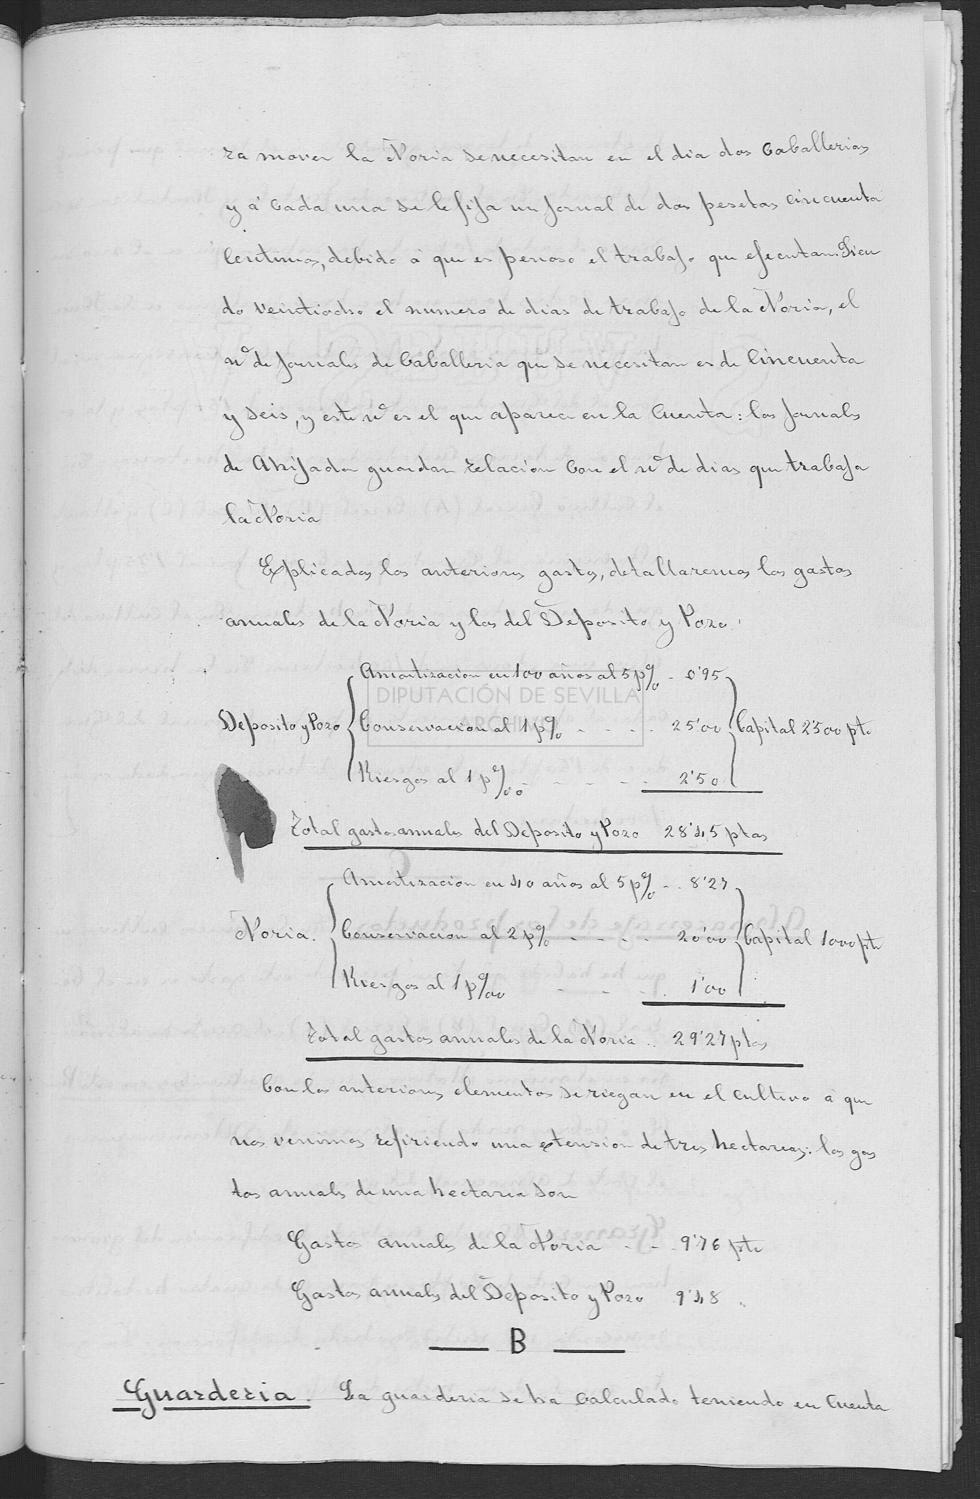 ra mover la Noria se necesitan en el dia dos Caballerias
y á cada una se le fija un jornal de dos pesetas cincuenta
centimos, debido á que es penoso el trabajo que efectuan. Sien
do veintiocho el numero de dias de trabajo de la Noria, el
nº de jornales de Caballeria que se necesitan es de Cincuenta
y seis, y este nº es el que aparece en la Cuenta: los jornales
de Ahijador guardan relacion con el nº de dias que trabaja
la Noria
Explicados los anteriores gastos, detallaremos los gastos
anuales de la Noria y los del Deposito y Pozo.
Amortizacion en 100 años al 5 p% - 0'95
DIPUTACIÓN DE SEVILLA
ARCHIVO
Deposito y Pozo Conservacion al 1 p% - - - - 25'00 Capital 2500 pts
Riesgos al 1 p‰ - - - - 2'50
Total gastos anuales del Deposito y Pozo 28'45 ptas
Amortizacion en 40 años al 5 p% - . 8'27
Noria. Conservacion al 2 p% - - - - 20'00 Capital 1000 pts
Riesgos al 1 p‰ - - - 1'00
Total gastos anuales de la Noria .. 29'27 ptas
Con los anteriores elementos se riegan en el cultivo á que
nos venimos refiriendo una extension de tres hectareas: los gas
tos anuales de una hectarea son
Gastos anuales de la Noria - - 9'76 pts
Gastos anuales del Deposito y Pozo 9'48 "
B
Guarderia. La guarderia se ha calculado teniendo en Cuenta